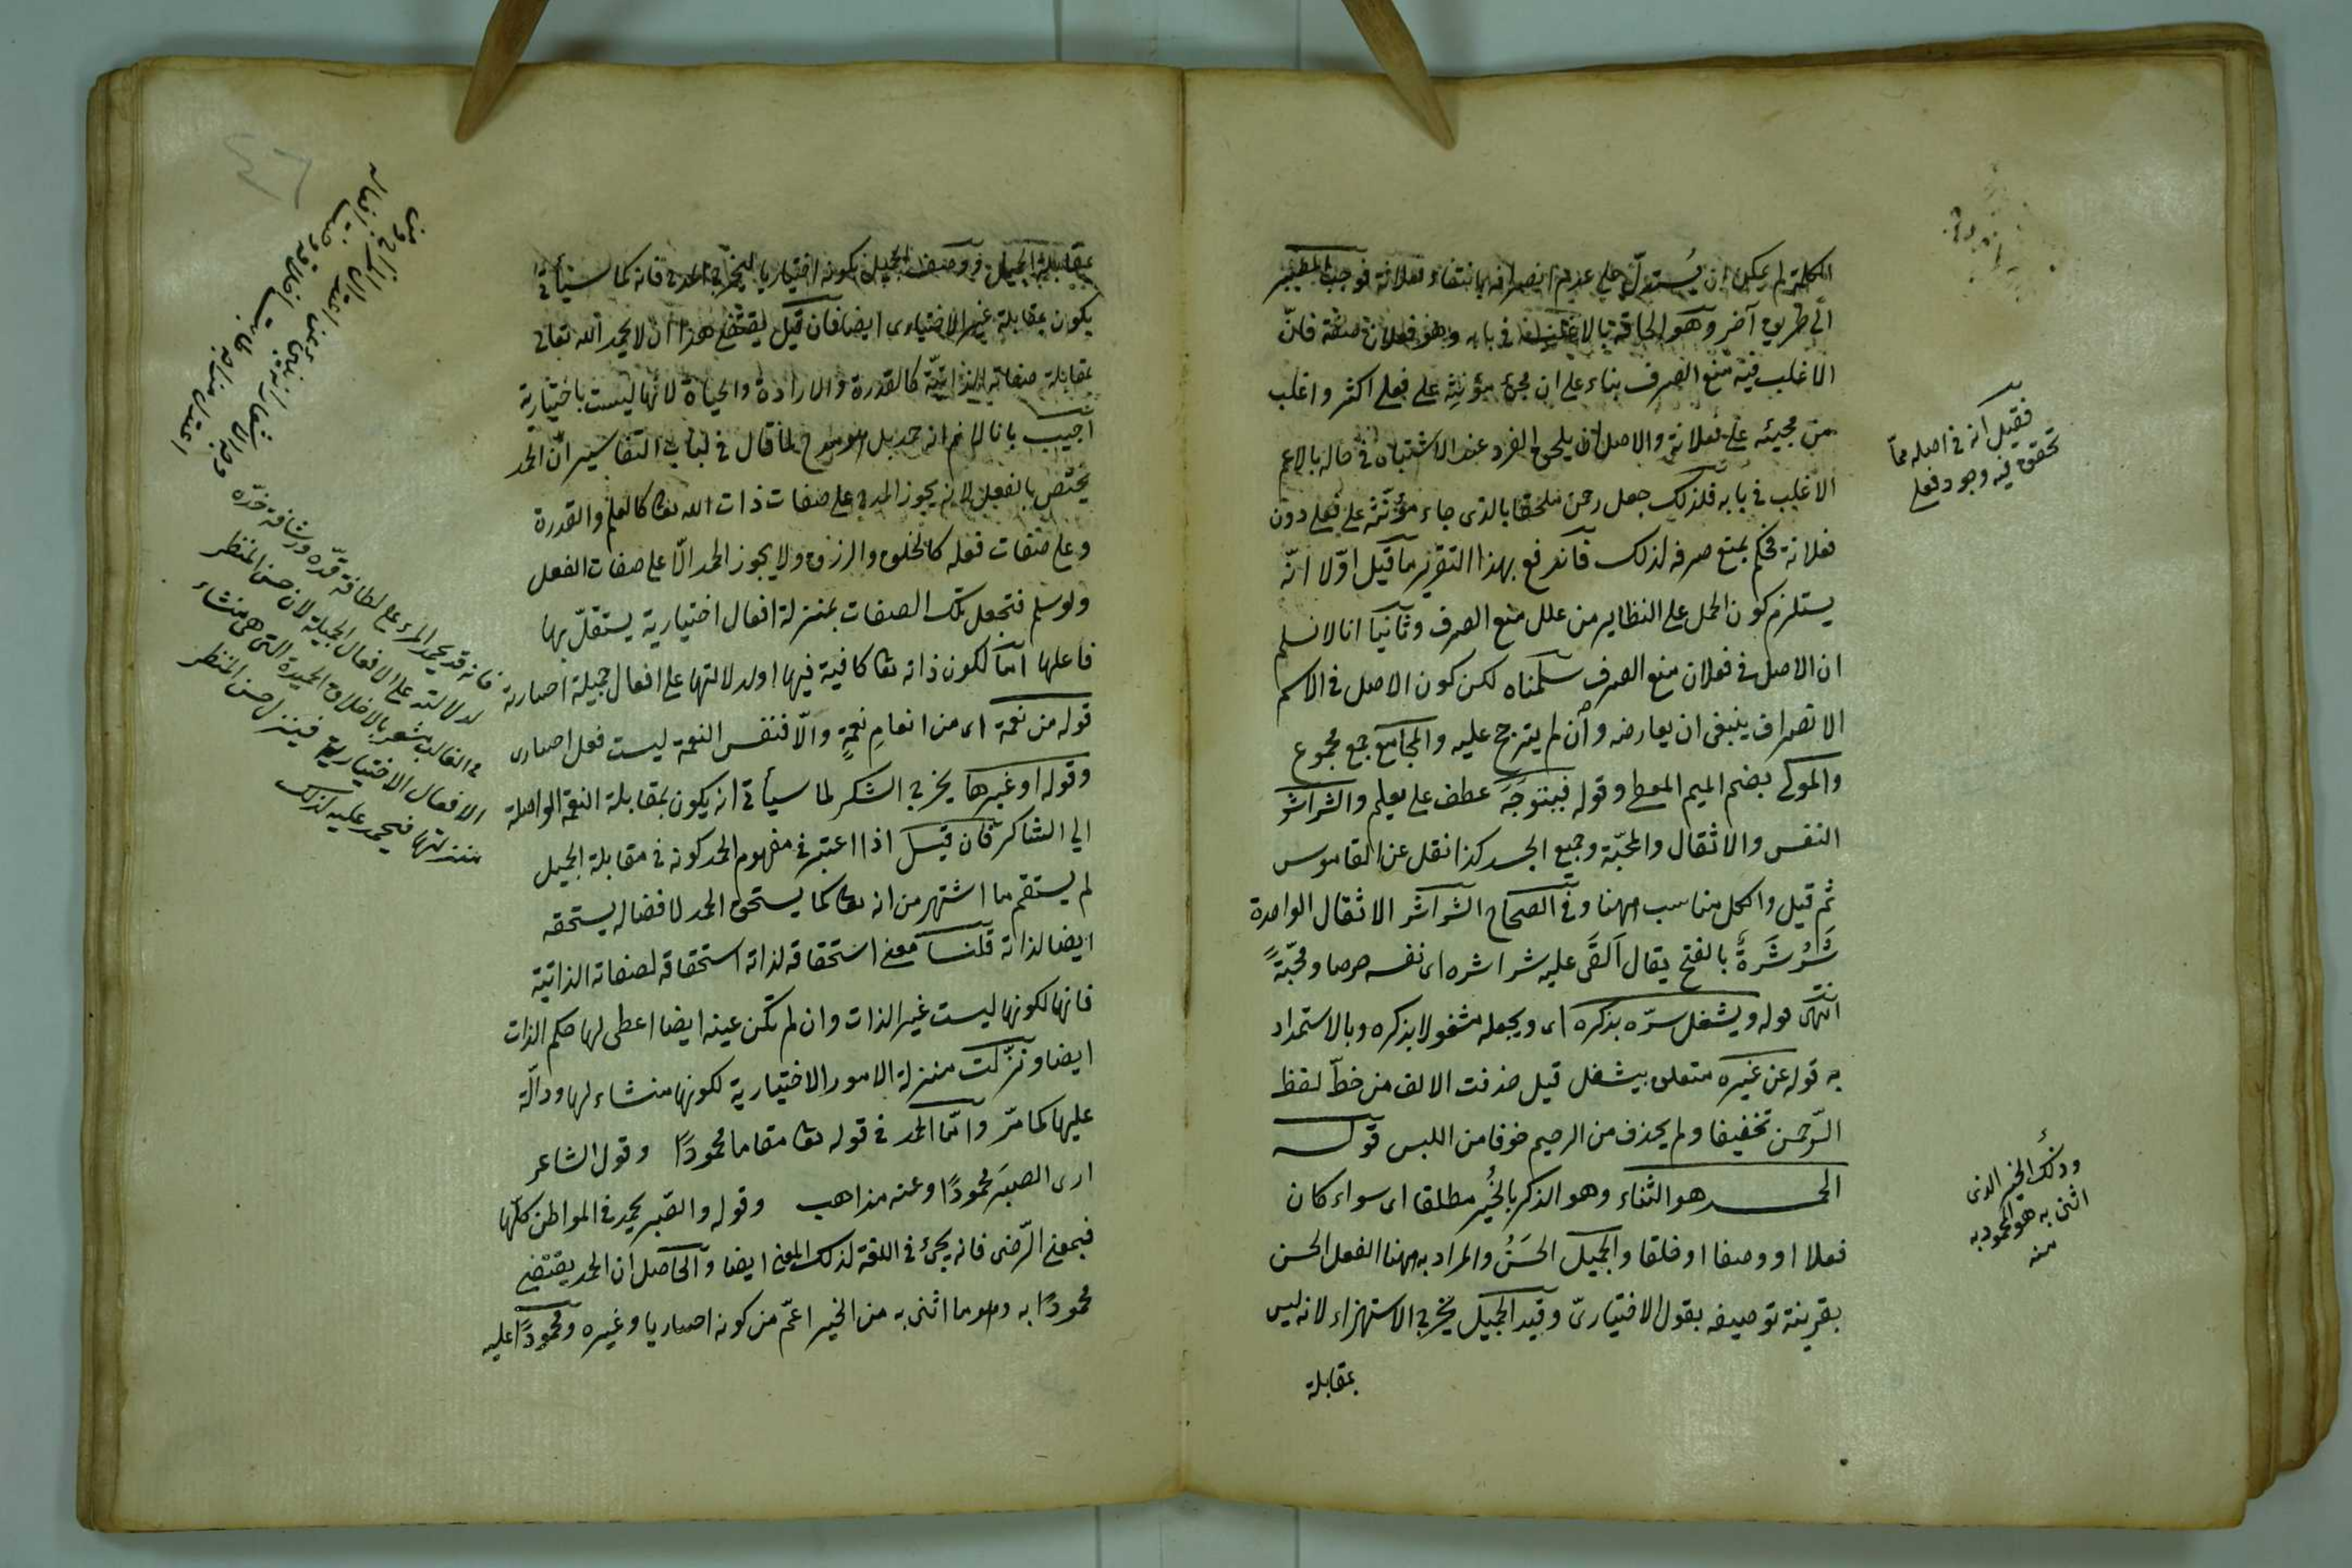 الكلمة لم يمكن ان يُستدلّ على عدم انصرافه بانتفاء فعلانة فوجب المصير
الى طريق آخر وهو الحاقه بالاغلب في بابه وهو فعلان صفة فانّ
الاغلب فيه منع الصرف بناء على ان مجئ مؤنثه على فعلى اكثر واغلب
من مجيئه على فعلانة والاصل ان يلحق الفرد عند الاشتباه في حاله بالاعم
الاغلب في بابه فلذلك جعل رحمن ملحقا بالذى جاء مؤنثه على فعلى دون
فعلانة فحكم بمنع صرفه لذلك فاندفع بهذا التقرير ما قيل اوّلا انّه
يستلزم كون الحمل على النظاير من علل منع الصرف وثانيا انا لا نسلم
ان الاصل في فعلان منع الصرف سلّمناه لكن كون الاصل في الاسم
الانصراف ينبغى ان يعارضه وأن لم يترجح عليه والمجامع جمع مجموع
والمولى بضم الميم المعطى وقوله فيتوجّه عطف على يعلم والشراشر
النفس والاثقال والمحبّة وجميع الجسد كذا نقل عن القاموس
ثم قيل والكل مناسب ههنا وفى الصحاح الشراشر الاثقال الواحدة
شَرْشَرَةٌ بالفتح يقال اَلقَى عليه شراشره اى نفسه حرصا ومحبّةً
انتهى قوله ويشغل سرّه بذكره اى ويجعله مشغولا بذكره وبالاستمداد
به قوله عن غيره متعلق بيشغل قيل حذفت الالف من خطّ لفظ
الرّحمن تخفيفا ولم يحذف من الرحيم خوفا من اللبس قوله
الحمد هو الثناء وهو الذكر بالخُير مطلقا اى سواء كان
فعلا او وصفا او خلقا والجميل الحَسَنُ والمراد به ههنا الفعل الحسن
بقرينة توصيفه بقول الاختيارىّ وقيد الجميل يخرج الاستهزاء لانه ليس
بمقابلة
فقيل انه في اصله ممّا
تحقق فيه وجود فعلى
وذلك الخير الذى
اثنى به هو المحمود به
منه
بمقابلة الجميل ووصف الجميل بكونه اختياريا ليخرج المدح فانه كما سيأتى
يكون بمقابلة غير الاختيارى ايضا فان قيل يقتضى هذا ان لا يحمد الله تعالى
بمقابلة صفاته الذاتيّة كالقدرة والارادة والحياة لانها ليست باختيارية
اجيب بانا لا نم انه حمد بل هو مدح لما قال في لباب التفاسير انّ الحمد
يختص بالفعل لانه يجوز المدح على صفات ذات الله تعا كالعلم والقدرة
وعلى صفات فعله كالخلق والرزق ولا يجوز الحمد الّا على صفات الفعل
ولو سلم فتجعل تلك الصفات بمنزلة افعال اختيارية يستقلّ بها
فاعلها امّا لكون ذاته تعا كافية فيها او لدلالتها على افعال جميلة اختيارية
قوله من نعمة اى من انعامِ نعمةٍ والّا فنفس النعمة ليست فعل اختيارى
وقوله او غيرها يخرج الشكر لما سيأتى انه يكون بمقابلة النعمة الواصلة
الى الشاكر فان قيل اذا اعتبر في مفهوم الحمد كونه في مقابلة الجميل
لم يستقم ما اشتهر من انه تعا كما يستحق الحمد لافضاله يستحقه
ايضا لذاته قلنا معنى استحقاقه لذاته استحقاقه لصفاته الذاتية
فانها لكونها ليست غير الذات وان لم تكن عينه ايضا اعطى لها حكم الذات
ايضا ونزّلت منزلة الامور الاختيارية لكونها منشاء لها ودالّة
عليها كما مرّ وامّا الحمد في قوله تعا مقاما محمودًا وقول الشاعر
ارى الصبرَ محمودًا وعنه مذاهب وقوله والصّبر يحمد في المواطن كلّها
فبمعنى الرّضى فانه يجئ في اللغة لذلك المعنى ايضا والحاصل ان الحمد يقتضى
محمودًا به وهو ما اثنى به من الخير اعمّ من كونه اختياريا وغيره ومحمودًا عليه
فانه قد يحمد المرء على لطافة قدّه ورشاقة خدّه
لدلالته على الافعال الجميلة لان حسن المنظر
في الغالب يشعر بالاخلاق الحميدة التى هى منشاء
الافعال الاختيارية فينزل حسن المنظر
منزلتها فيحمد عليه لذلك